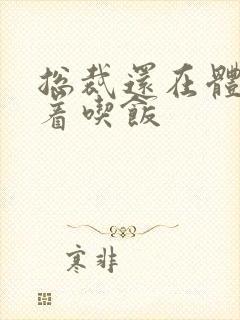 総裁還在體
着喫飯
寒非